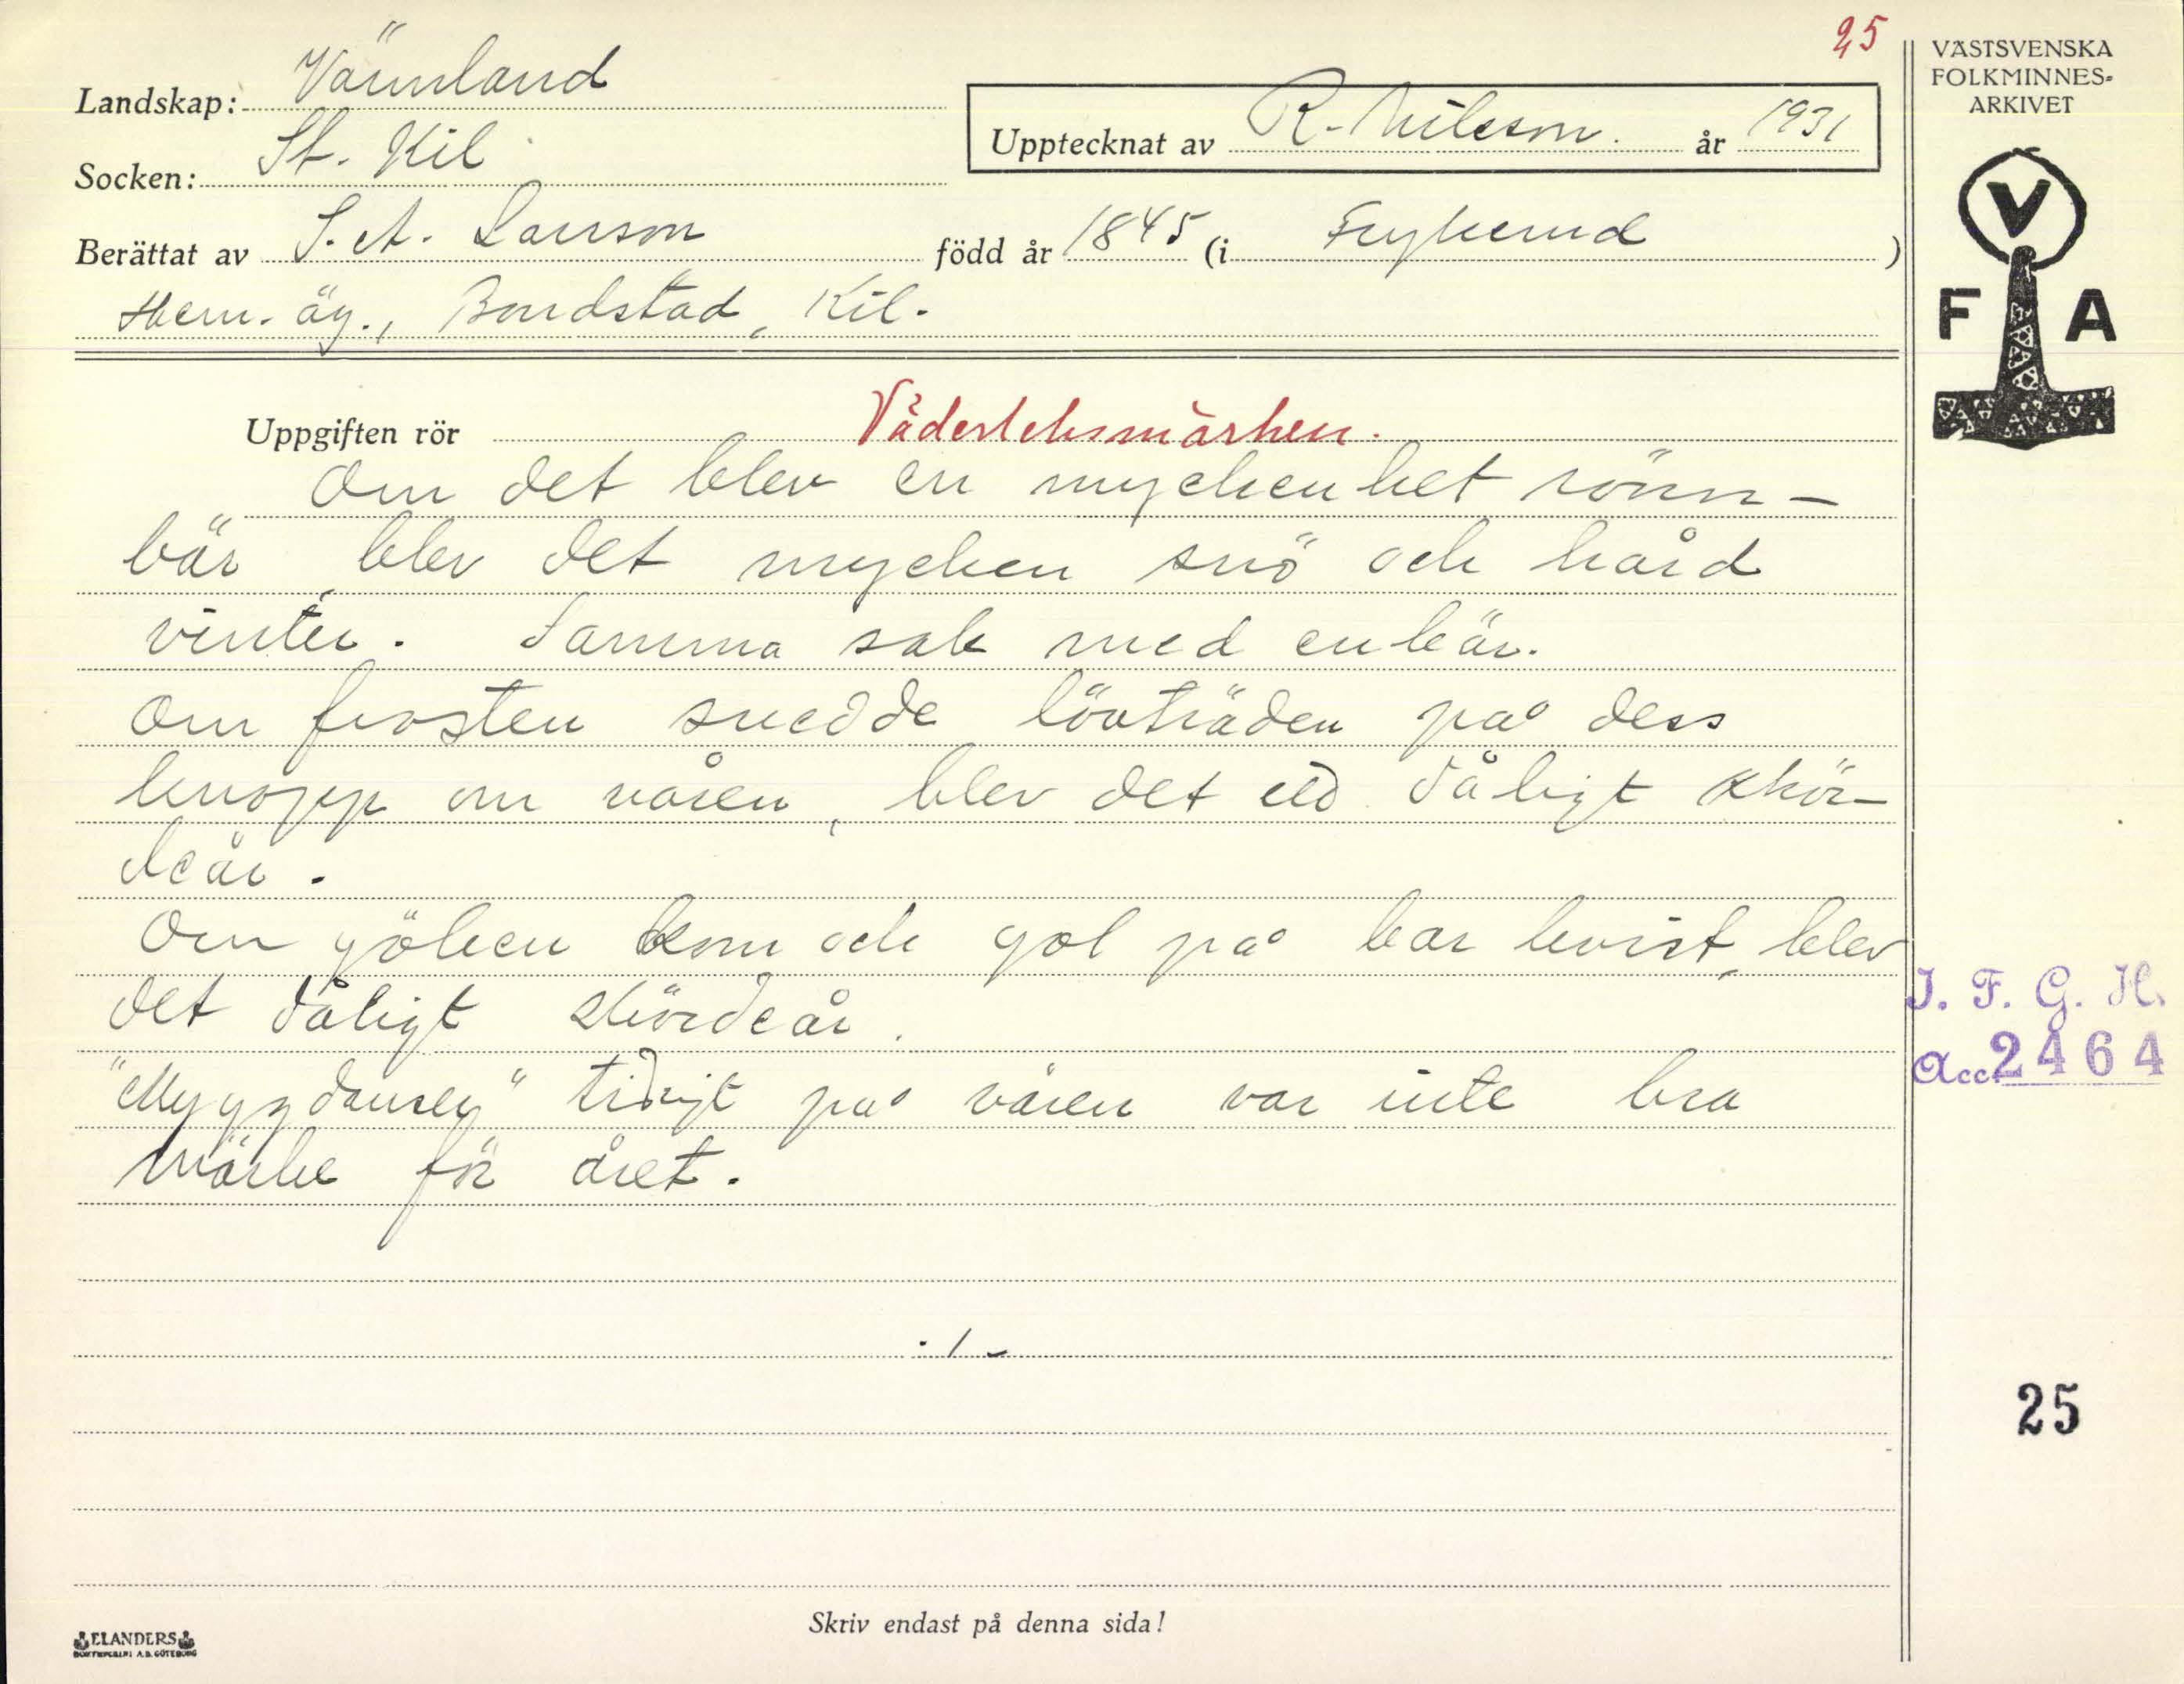 25
VÄSTSVENSKA
FOLKMINNES-
ARKIVET
Landskap: Värmland
Upptecknat av R. Nilsson. år 1931
Socken: St. Kil
Berättat av S. A. Larsson född år 1845 (i Frykerud)
Hem. äg., Bondstad, Kil.
V
F A
Uppgiften rör Väderleksmärken.
Om det blev en myckenhet rönn-
bär blev det mycken snö och hård
vinter. Samma sak med enbär.
Om frosten svedde lövträden på dess
knopp om våren, blev det ett dåligt skör-
deår.
Om göken kom och gol på bar kvist, blev
det dåligt skördeår.
"Myggdansen" tidigt på våren var inte bra
märke för året.
./-
I. F. G. H.
Acc. 2464
25
Skriv endast på denna sida!
ELANDERS
BOKTRYCKERI A.B. GÖTEBORG